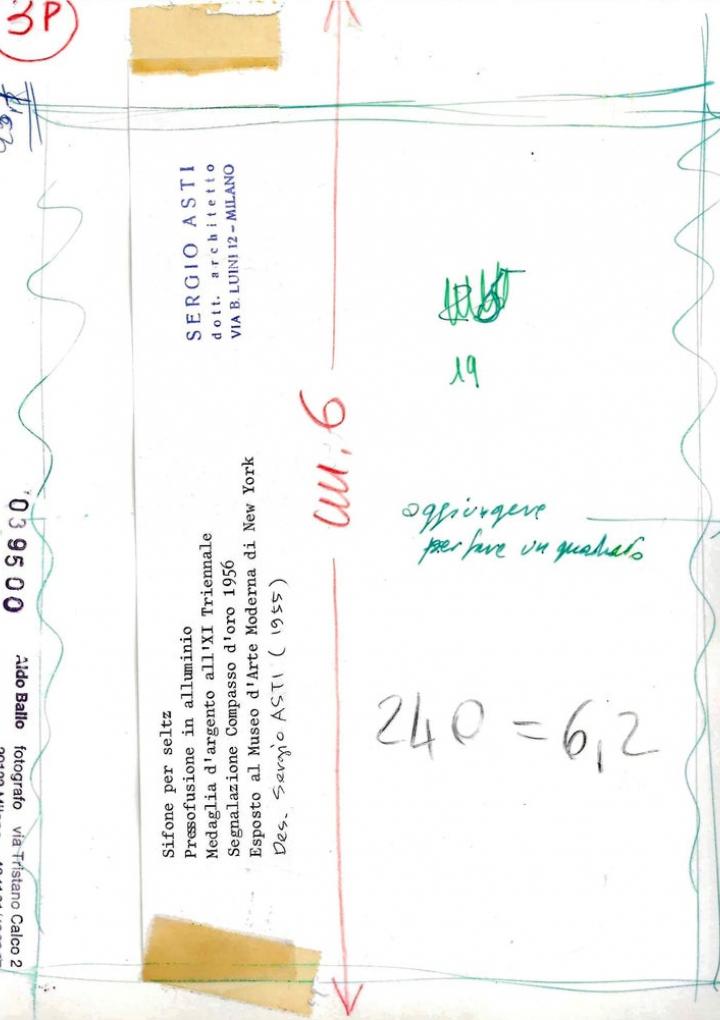 3P
SERGIO ASTI
dott. architetto
VIA B. LUINI 12 - MILANO
Sifone per seltz
Pressofusione in alluminio
Medaglia d'argento all'XI Triennale
Segnalazione Compasso d'oro 1956
Esposto al Museo d'Arte Moderna di New York
Des. Sergio ASTI (1955)
cm. 6
19
aggiungere
per fare un quadrato
240 = 6,2
039500
Aldo Ballo fotografo via Tristano Calco 2